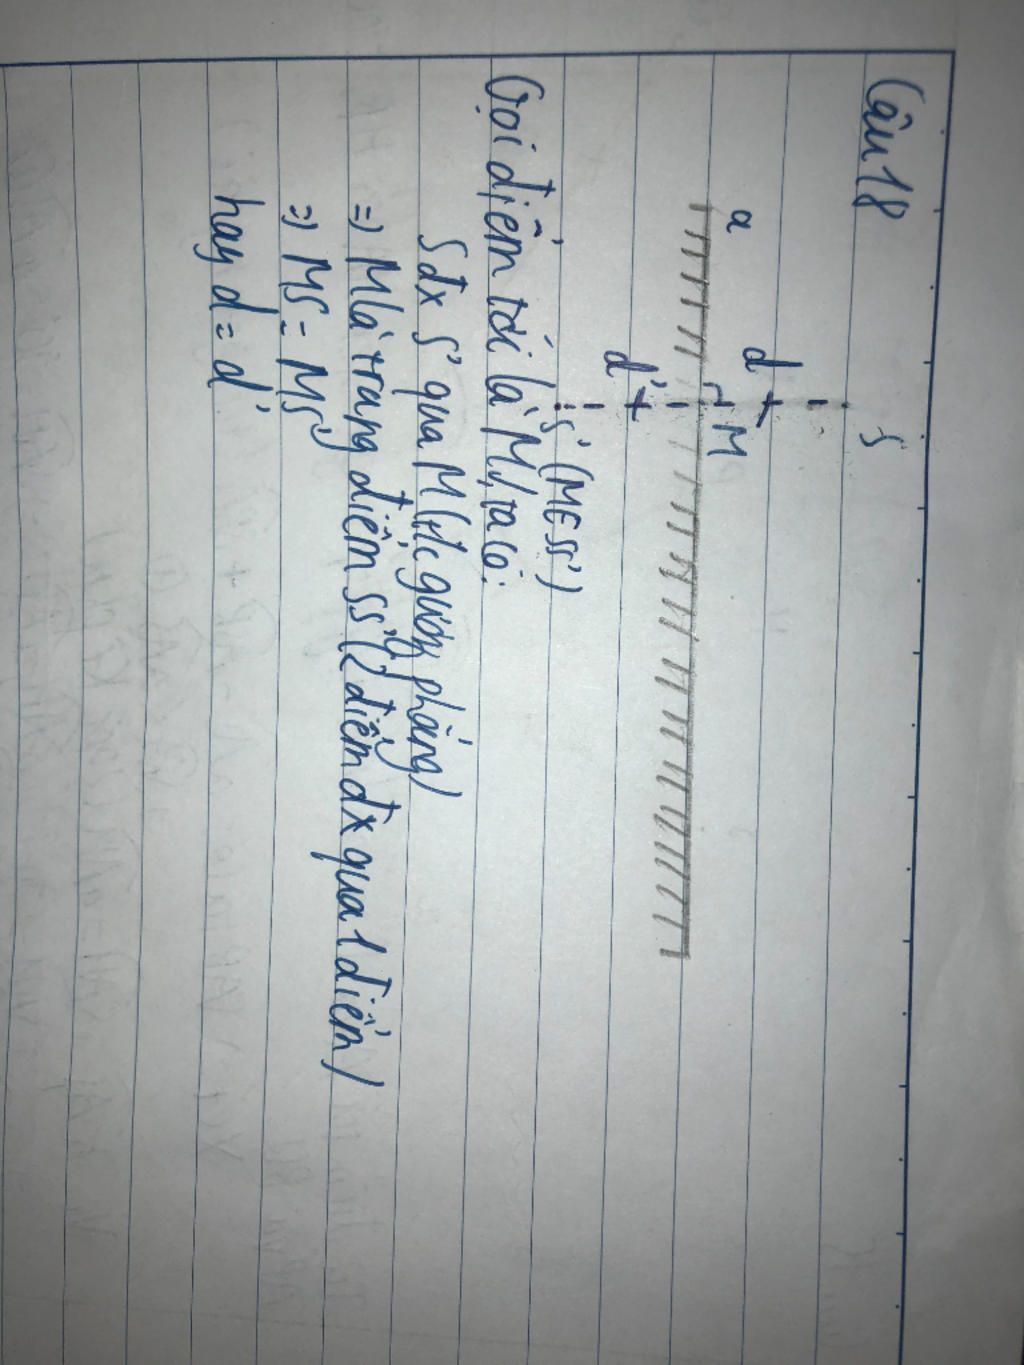 Câu 18
S
d
a
M
d'
S' (M∈SS')
Gọi điểm tới là M, ta có:
S đx S' qua M (t/c gương phẳng)
=> M là trung điểm SS' (2 điểm đx qua 1 điểm)
=> MS = MS'
hay d = d'